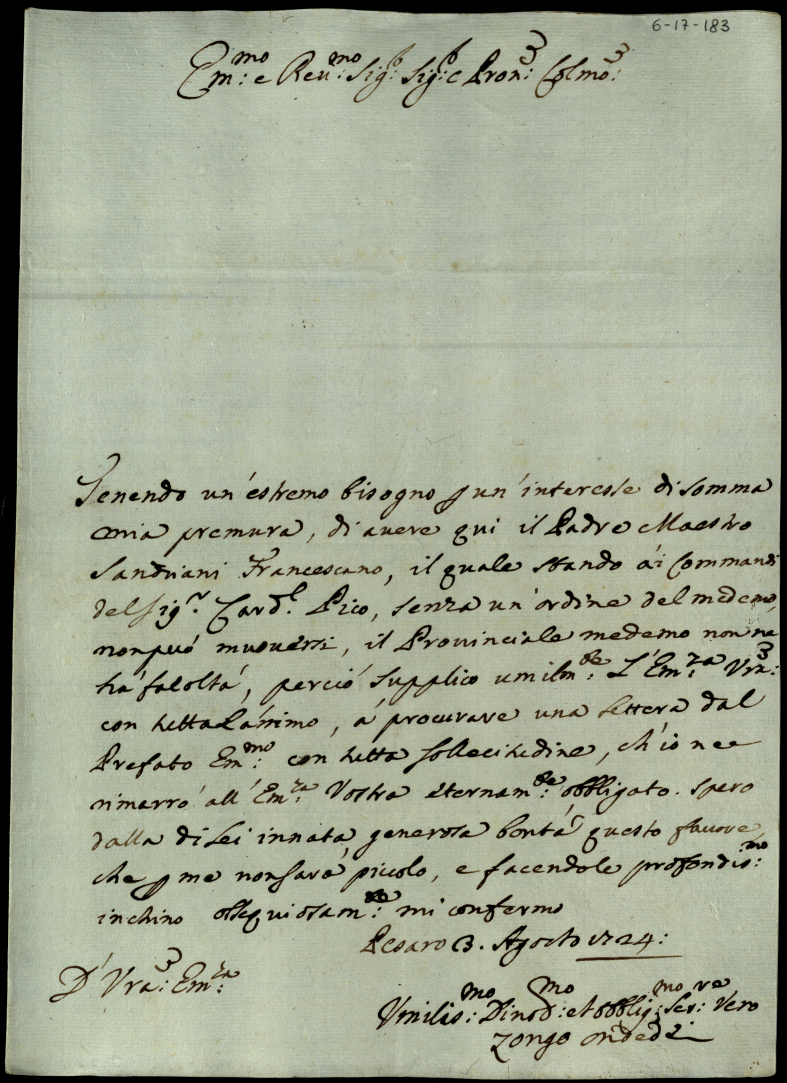 6-17-183
Em:mo e Reu:mo Sig:r Sig:r e Pron: Colmo:
Tenendo un'estremo bisogno p un'interesse di somma
mia premura, di auere qui il Padre Maestro
Francescano, il quale stando ai Commandi
del Sig:r Card:l Pico, senza un'ordine del medemo,
non può muouersi, il Prouinciale medemo non ne
hà facoltà, perciò supplico umilm:te L'Em:za Vra:
con tutto l'animo, à procurare una lettera dal
Prefato Em:mo con tutta sollecitudine, ch'io ne
rimarrò all'Em:za Vostra eternam:te obbligato. Spero
dalla di Lei innata, generosa bontà questo fauore,
che p me non sarà piccolo, e facendole profondis:mo
inchino ossequiosam:te mi confermo
Pesaro 3. Agosto 1724:
D' Vra: Em:za
Vmilis:mo Diuot:mo et Obblig:mo Ser:re Vero
Zongo Ondedei